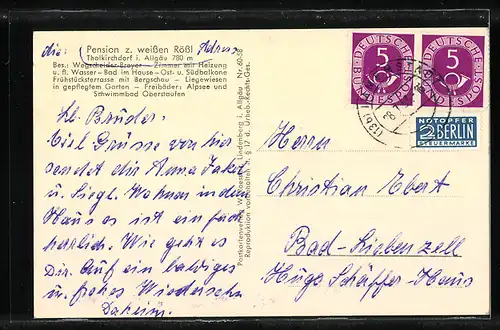 die: Pension z. weißen Rößl Adress
Thalkirchdorf i. Allgäu 780 m
Bes.: Wegscheider-Breyer - Zimmer mit Heizung
u. fl. Wasser - Bad im Hause - Ost- u. Südbalkone
Frühstücksterrasse mit Bergschau - Liegewiesen
in gepflegtem Garten - Freibäder: Alpsee und
Schwimmbad Oberstaufen
lb. Bruder.
Viel Grüsse von hier
sendet dir Anna Jakob
u. Siegl. Wohnen in dem
Haus es ist einfach
herrlich. Wie geht es
Dir. Auf ein baldiges
u. frohes Wiedersehn
Daheim.
Lindenberg i. Allgäu Nr. 60/58
Reproduktion vorbehalten lt. § 17 d. Urheb.-Rechts-Ges.
DEUTSCHE BUNDESPOST
5
DEUTSCHE BUNDESPOST
5
NOTOPFER
2 BERLIN
STEUERMARKE
Herrn
Christian Ebert
Bad-Liebenzell
Hugo Schäffer-Haus